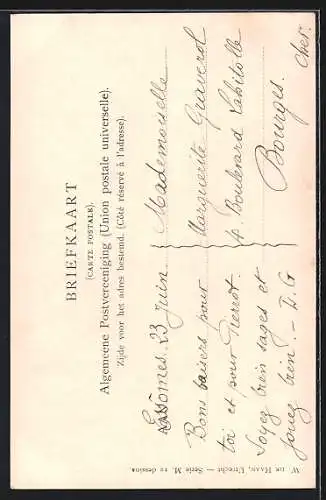 BRIEFKAART
(CARTE POSTALE).
Algemeene Postvereeniging (Union postale universelle).
Zijde voor het adres bestemd. (Côté réservé à l'adresse).
23 Juin
Bons baisers pour
toi et pour Pierrot.
Soyez bien sages et
jouez bien. — D. G
Mademoiselle
Marguerite
Boulevard Lahitolle
Bourges.
Cher.
W. DE HAAN, Utrecht — Serie M. 12 dessins